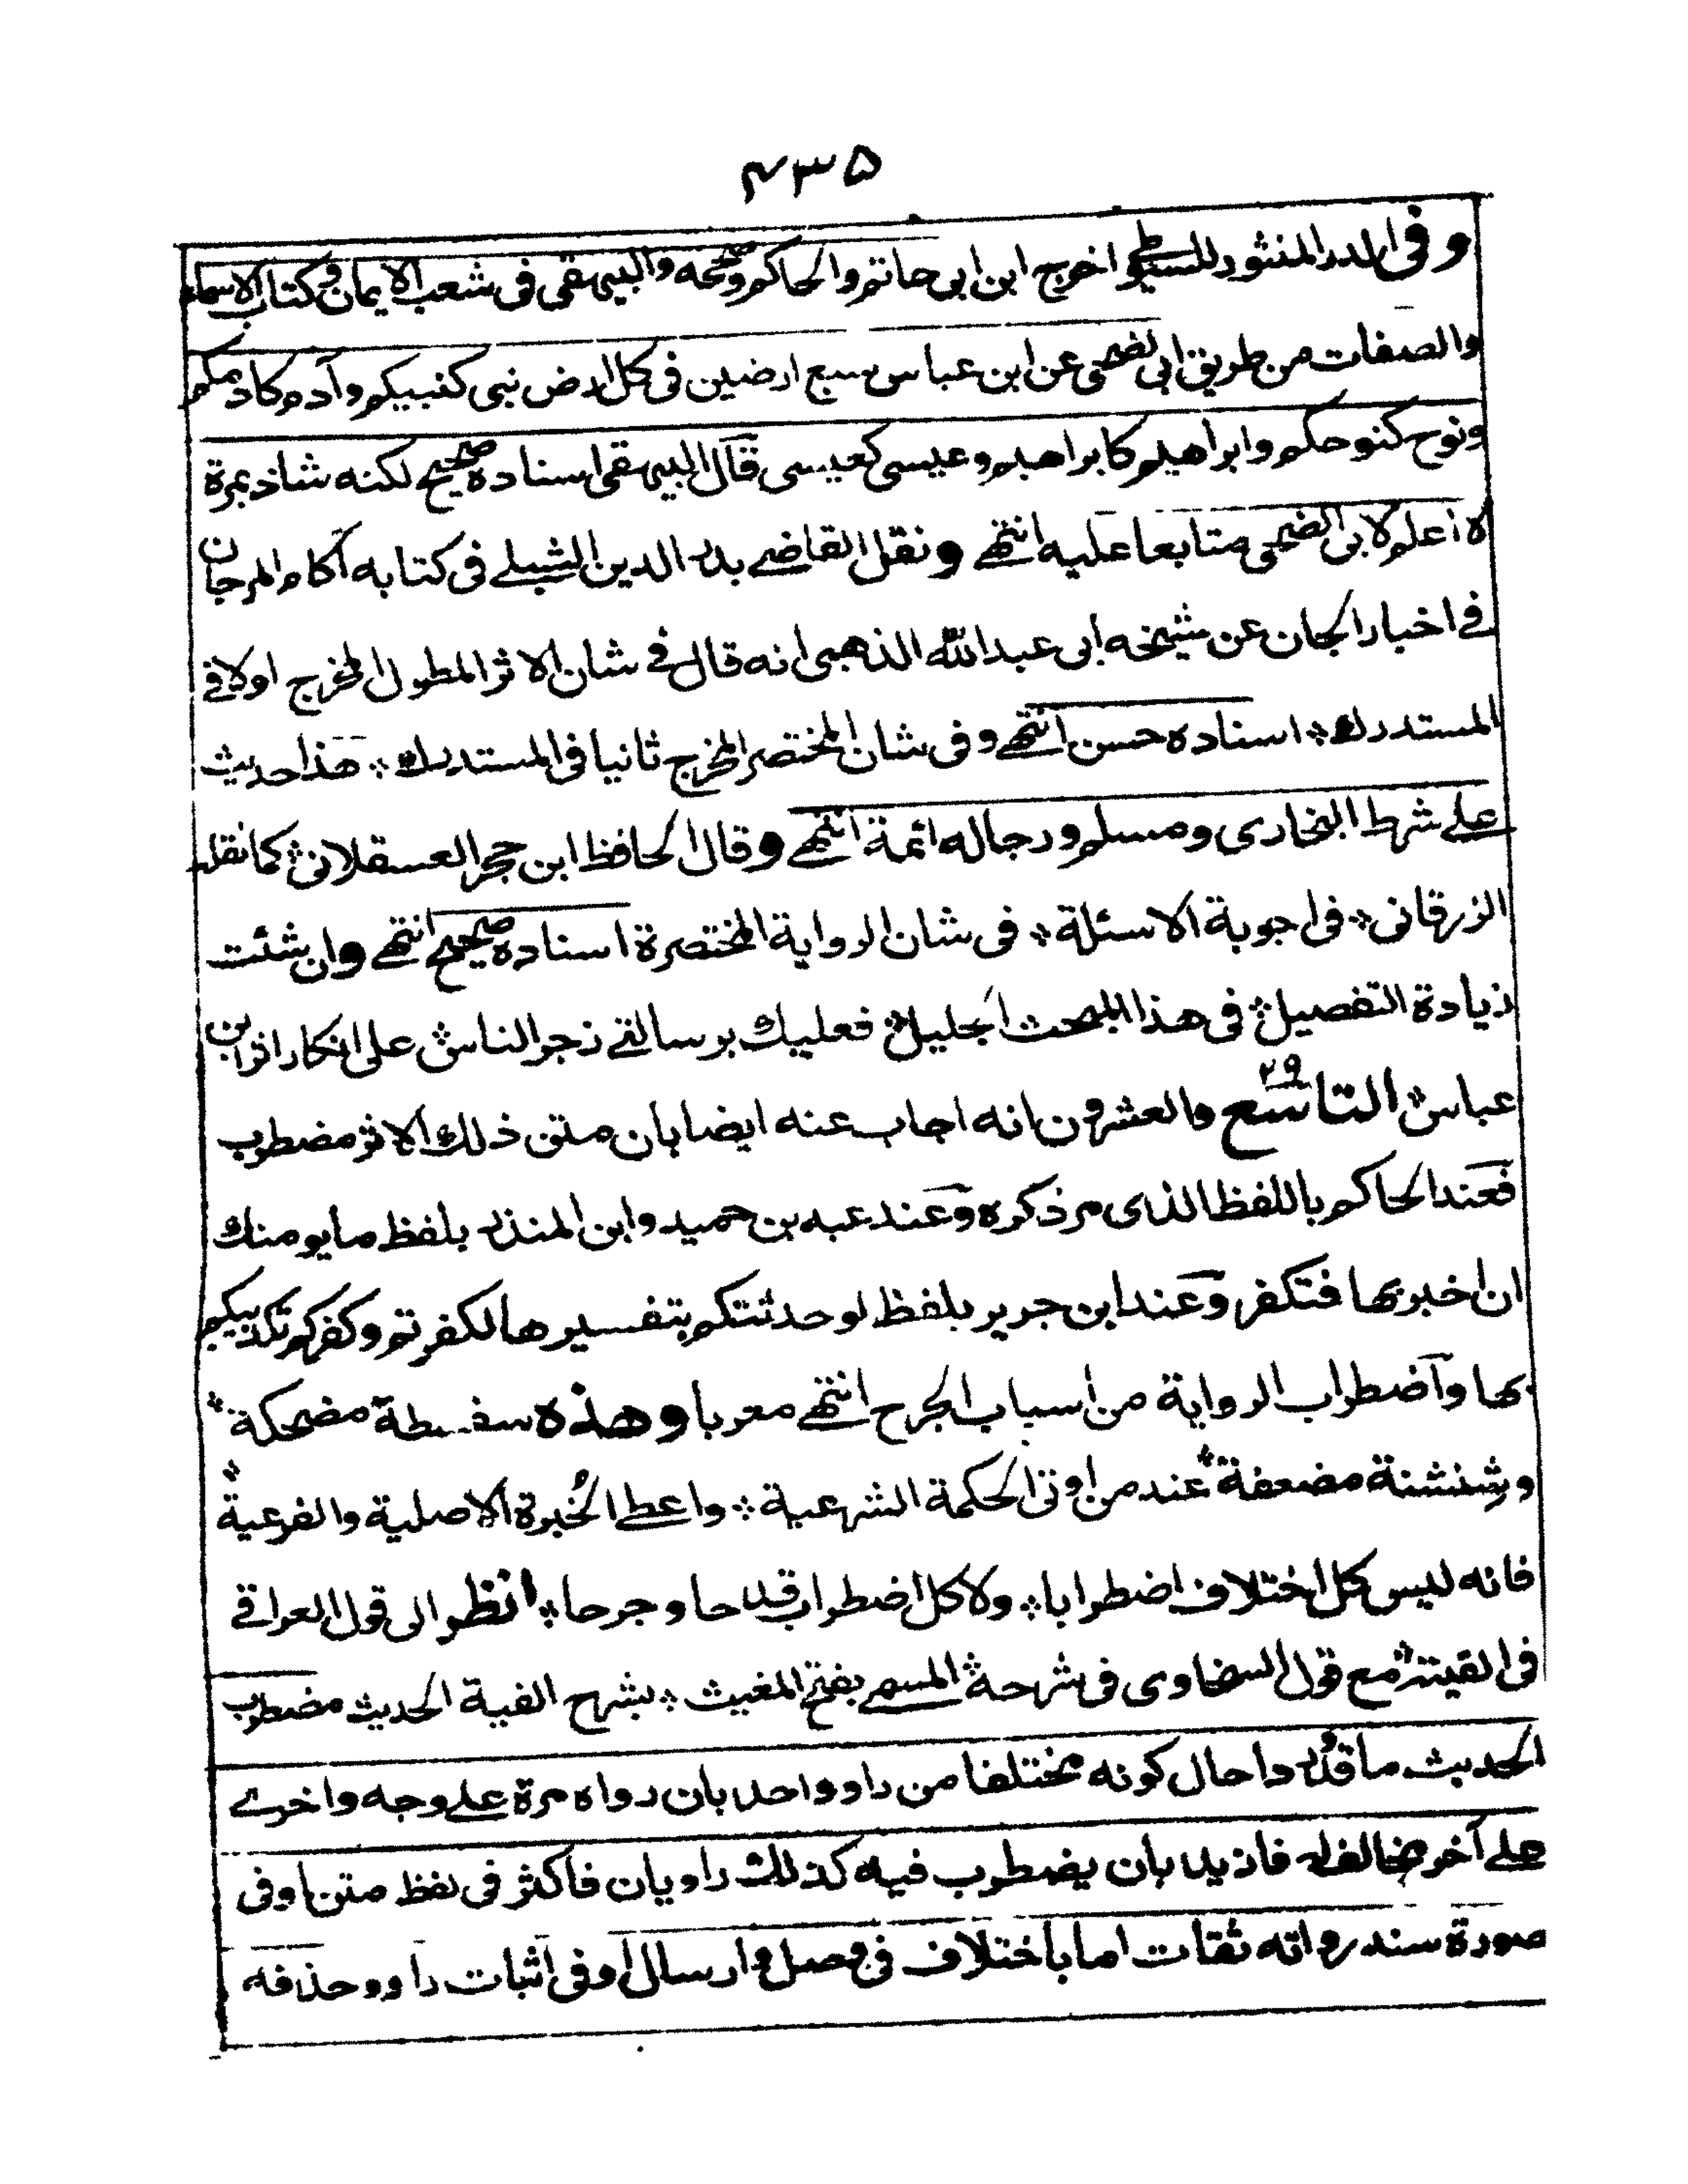 ۴۳۵
وفی الدر المنثور للسیوطی اخرج ابن ابی حاتم والحاکم وصححه والبیهقی فی شعب الایمان وکتاب الاسماء
والصفات من طریق ابی الضحی عن ابن عباس سبع ارضین فی کل ارض نبی کنبیکم وآدم کآدمکم
ونوح کنوحکم وابراهیم کابراهیم وعیسی کعیسی قال البیهقی اسناده صحیح لکنه شاذ بمرة
لا اعلم لابی الضحی متابعا علیه انتهے ونقل القاضے بدر الدین الشبلے فی کتابه آکام المرجان
فے اخبار الجان عن شیخه ابی عبد الله الذهبی انه قال فے شان الاثر المطول المخرج اولا فے
المستدرك ⁘ اسناده حسن انتهے وفی شان المختصر المخرج ثانیا فی المستدرك ⁘ هذا حدیث
علے شرط البخاری ومسلم ورجاله ائمة انتهے وقال الحافظ ابن حجر العسقلانی ⁘ کما نقله
الزرقانی ⁘ فی اجوبة الاسئلة ⁘ فی شان الروایة المختصرة اسناده صحیح انتهے وان شئت
زیادة التفصیل ⁘ فی هذا المبحث الجلیل ⁘ فعلیك برسالتے زجر الناس ⁘ علی انکار اثر ابن
عباس ⁘ التاسع ۲۹ والعشرون انه اجاب عنه ایضا بان متن ذلك الاثر مضطرب
فعند الحاکم باللفظ الذی مر ذکره وعند عبد بن حمید وابن المنذر بلفظ ما یومنك
ان اخبر بها فتکفر وعند ابن جریر بلفظ لو حدثتکم بتفسیرها لکفرتم وکفرکم تکذیبکم
بها واضطراب الروایة من اسباب الجرح انتهے معربا وهذه سفسطة مضحکة ⁘
وشنشنة مضعفة ⁘ عند من اوتی الحکمة الشرعیة ⁘ واعطے الخُبرة الاصلیة والفرعیة ⁘
فانه لیس کل اختلاف اضطرابا ⁘ ولا کل اضطراب قدحا وجرحا ⁘ انظر الی قول العراقے
فی الفیته ⁘ مع قول السخاوی فی شرحه ⁘ المسمے بفتح المغیث ⁘ بشرح الفیة الحدیث مضطرب
الحدیث ما قد ورد حال کونه مختلفا من راو واحد بان رواه مرة علے وجه واخرے
علے آخر مخالف له فازید بان یضطرب فیه کذلك راویان فاکثر فی لفظ متن او فی
صورة سند رواته ثقات اما باختلاف فی وصل وارسال او فی اثبات راو وحذفه